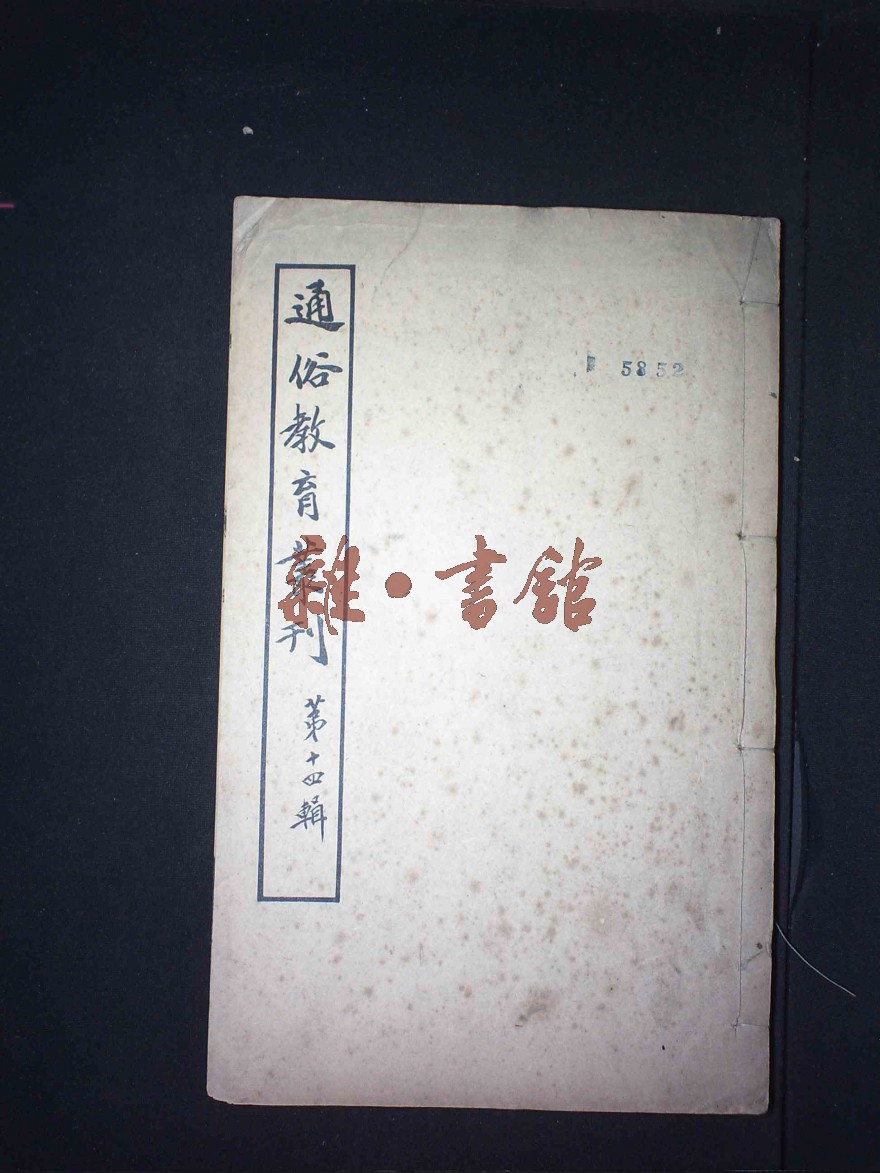 通俗教育叢刊 第十四輯
5852
雜·書館